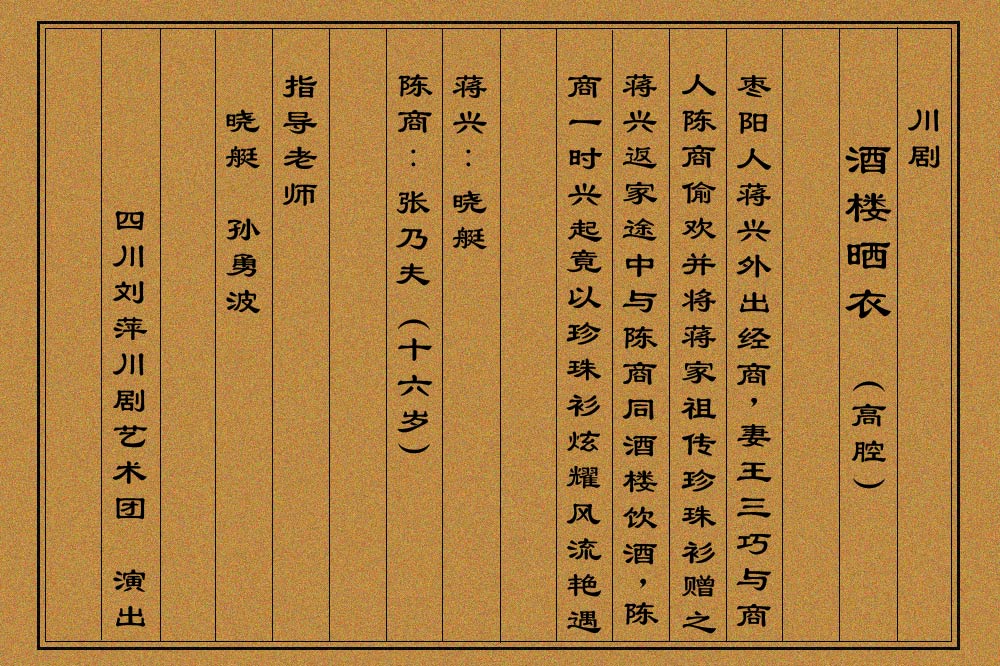 川剧
酒楼晒衣（高腔）
枣阳人蒋兴外出经商，妻王三巧与商
人陈商偷欢并将蒋家祖传珍珠衫赠之
蒋兴返家途中与陈商同酒楼饮酒，陈
商一时兴起竟以珍珠衫炫耀风流艳遇
蒋兴：晓艇
陈商：张乃夫（十六岁）
指导老师
晓艇 孙勇波
四川刘萍川剧艺术团 演出